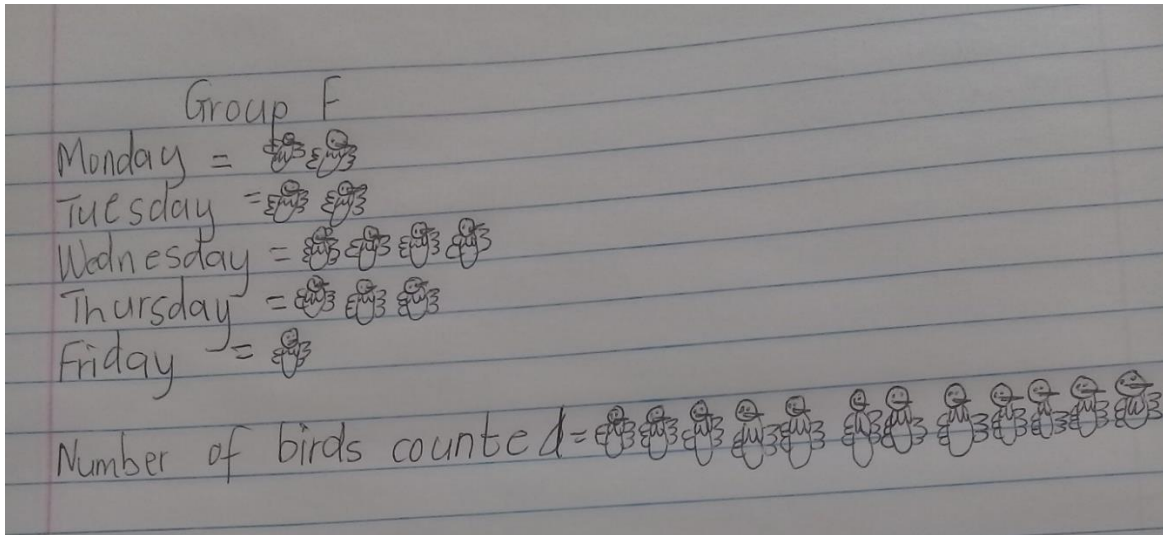 Group F
Monday =
Tuesday =
Wednesday =
Thursday =
Friday =
Number of birds counted =